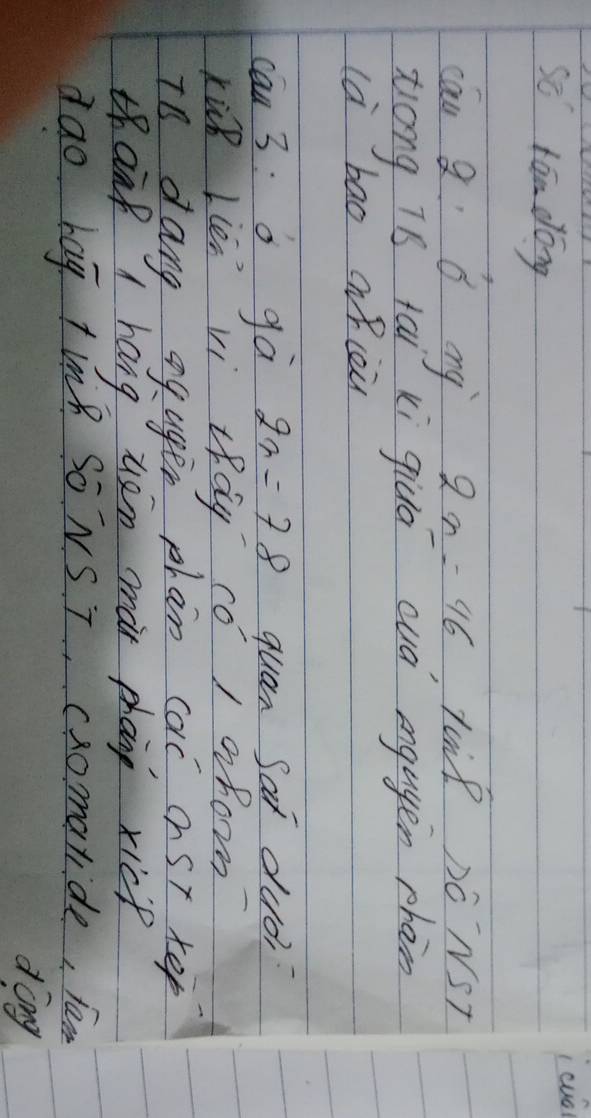 số tâm động
câu 2: ở mỳ 2n = 46 tính số NST
trong TB tại kì giữa của nguyên phân
là bao nhiêu
câu 3: ở gà 2n = 78 quan sát dưới
kính hiển vi thấy có 1 nhóm
TB đang nguyên phân các nst xếp
thành 1 hàng trên mặt phẳng xích
đạo hãy tính số NST, cromatide, tâm
động
của